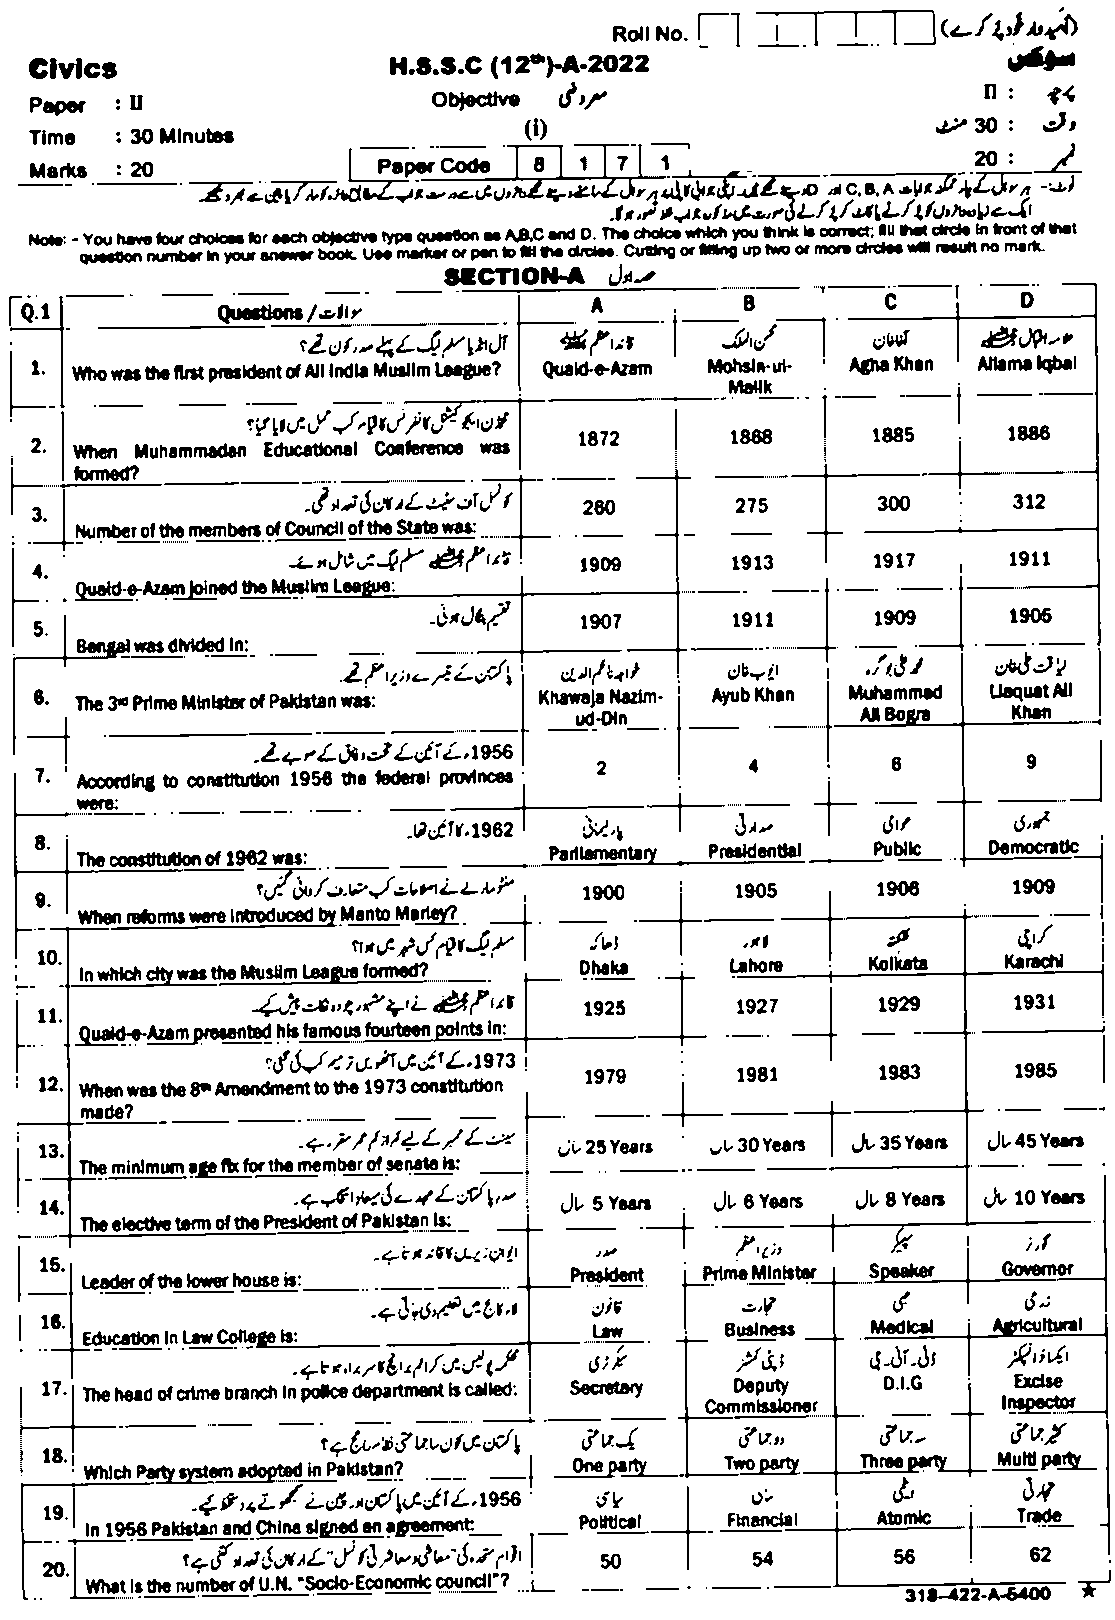 Roll No. (امیدوار خود پُر کرے)
Civics H.S.S.C (12th)-A-2022 سوکس
Paper : II Objective معروضی پرچہ : II
Time : 30 Minutes (i) وقت : 30 منٹ
Marks : 20 Paper Code 8 1 7 1 نمبر : 20
Note: - You have four choices for each objective type question as A,B,C and D. The choice which you think is correct; fill that circle in front of that
question number in your answer book. Use marker or pen to fill the circles. Cutting or filling up two or more circles will result no mark.
SECTION-A حصہ اول
Q.1 Questions / سوالات A B C D
آل انڈیا مسلم لیگ کے پہلے صدر کون تھے؟ قائداعظم محسن الملک آغا خان علامہ اقبال
1. Who was the first president of All India Muslim League? Quaid-e-Azam Mohsin-ul-Malik Agha Khan Allama Iqbal
محمڈن ایجوکیشنل کانفرنس کا قیام کب عمل میں لایا گیا؟
2. When Muhammadan Educational Conference was formed? 1872 1868 1885 1886
کونسل آف سٹیٹ کے ارکان کی تعداد تھی۔
3. Number of the members of Council of the State was: 260 275 300 312
قائداعظم مسلم لیگ میں شامل ہوئے۔
4. Quaid-e-Azam joined the Muslim League: 1909 1913 1917 1911
تقسیم بنگال ہوئی۔
5. Bengal was divided in: 1907 1911 1909 1906
پاکستان کے تیسرے وزیراعظم تھے۔ خواجہ ناظم الدین ایوب خان محمد علی بوگرہ لیاقت علی خان
6. The 3rd Prime Minister of Pakistan was: Khawaja Nazim-ud-Din Ayub Khan Muhammad Ali Bogra Liaquat Ali Khan
1956ء کے آئین کے تحت وفاق کے صوبے تھے۔
7. According to constitution 1956 the federal provinces were: 2 4 6 9
1962ء کا آئین تھا۔ پارلیمانی صدارتی عوامی جمہوری
8. The constitution of 1962 was: Parliamentary Presidential Public Democratic
منٹو مارلے نے اصلاحات کب متعارف کروائی گئیں؟
9. When reforms were introduced by Manto Marley? 1900 1905 1906 1909
مسلم لیگ کا قیام کس شہر میں ہوا؟ ڈھاکہ لاہور کلکتہ کراچی
10. In which city was the Muslim League formed? Dhaka Lahore Kolkata Karachi
قائداعظم نے اپنے مشہور چودہ نکات پیش کیے۔
11. Quaid-e-Azam presented his famous fourteen points in: 1925 1927 1929 1931
1973ء کے آئین میں آٹھویں ترمیم کب کی گئی؟
12. When was the 8th Amendment to the 1973 constitution made? 1979 1981 1983 1985
سینٹ کے ممبر کے لیے کم از کم عمر مقرر ہے۔
13. The minimum age fix for the member of senate is: 25 Years سال 30 Years سال 35 Years سال 45 Years سال
صدر پاکستان کے عہدے کی میعاد انتخاب ہے۔
14. The elective term of the President of Pakistan is: 5 Years سال 6 Years سال 8 Years سال 10 Years سال
ایوان زیریں کا قائد ہوتا ہے۔ صدر وزیراعظم سپیکر گورنر
15. Leader of the lower house is: President Prime Minister Speaker Governor
لاء کالج میں تعلیم دی جاتی ہے۔ قانون تجارت طبی زرعی
16. Education in Law College is: Law Business Medical Agricultural
محکمہ پولیس میں کرائم برانچ کا سربراہ ہوتا ہے۔ سیکرٹری ڈپٹی کمشنر ڈی۔آئی۔جی ایکسائز انسپکٹر
17. The head of crime branch in police department is called: Secretary Deputy Commissioner D.I.G Excise Inspector
پاکستان میں کون سا جماعتی نظام رائج ہے؟ یک جماعتی دو جماعتی سہ جماعتی کثیر جماعتی
18. Which Party system adopted in Pakistan? One party Two party Three party Multi party
1956ء کے آئین میں پاکستان اور چین نے سمجھوتے پر دستخط کیے۔ سیاسی مالی ایٹمی تجارتی
19. In 1956 Pakistan and China signed an agreement: Political Financial Atomic Trade
اقوام متحدہ کی "معاشی و معاشرتی کونسل" کے ارکان کی تعداد کتنی ہے؟
20. What is the number of U.N. "Socio-Economic council"? 50 54 56 62
318-422-A-5400 ★